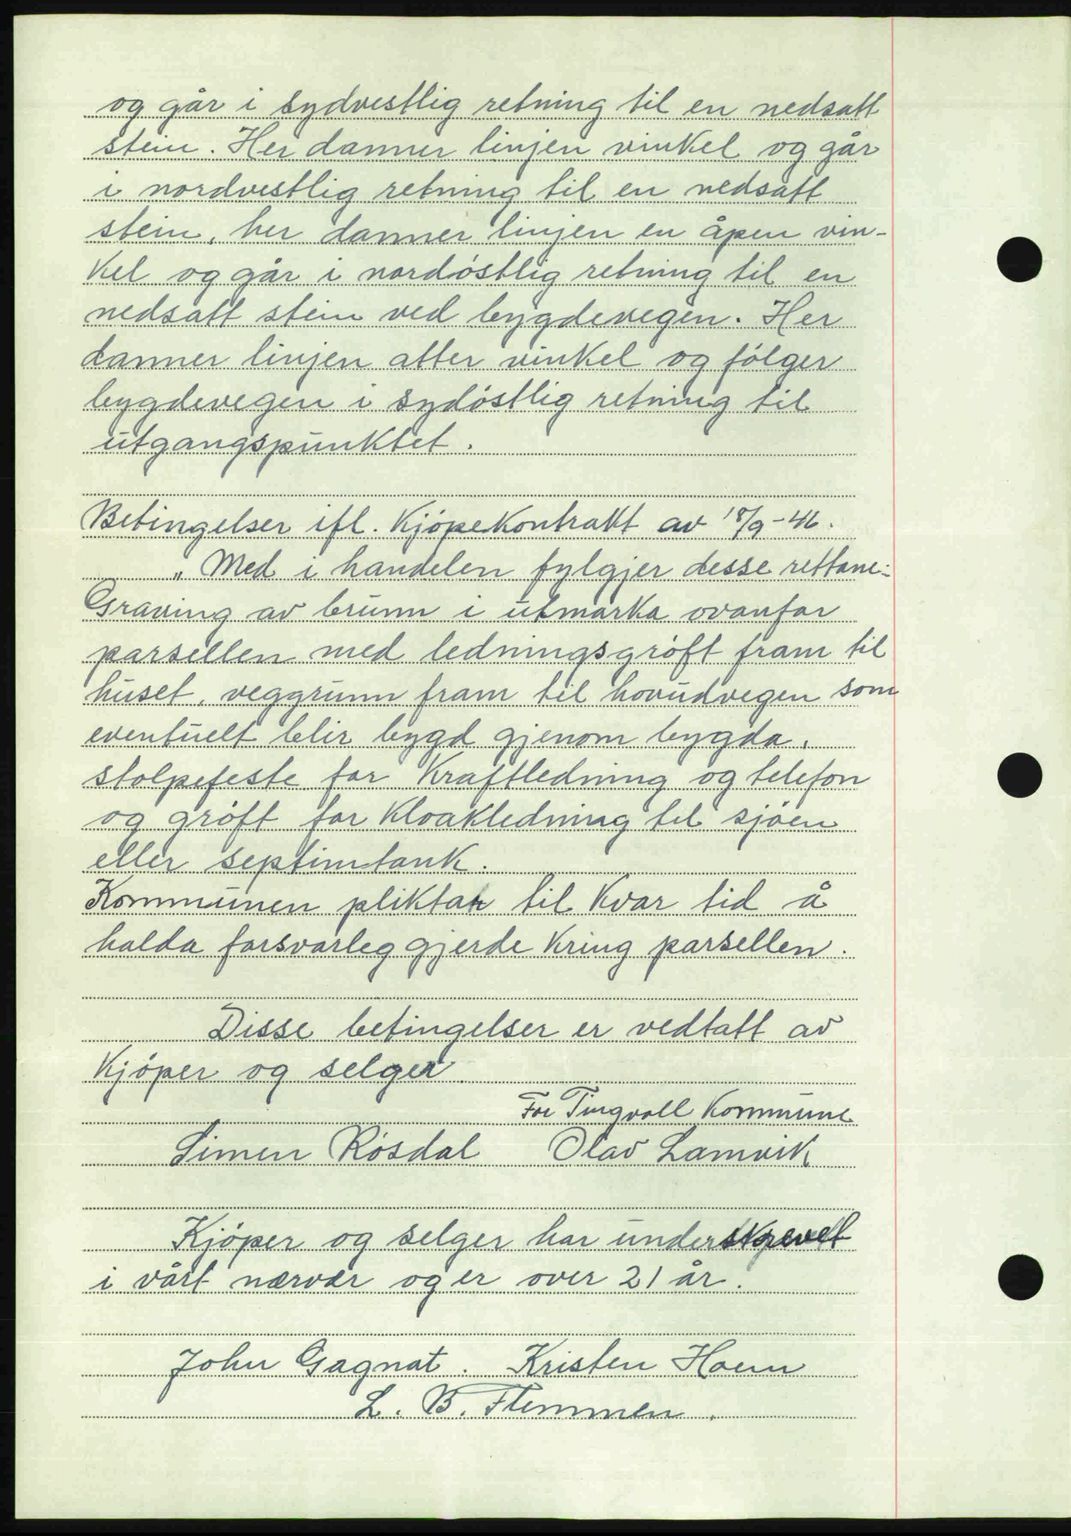 og går i sydvestlig retning til en nedsatt
stein. Her danner linjen vinkel og går
i nordvestlig retning til en nedsatt
stein, her danner linjen en åpen vin-
kel og går i nordöstlig retning til en
nedsatt stein ved bygdevegen. Her
danner linjen atter vinkel og fölger
bygdevegen i sydöstlig retning til
utgangspunktet.
Betingelser ifl. Kjöpekontrakt av 18/9-46.
„Med i handelen fylgjer desse rettane:
Graving av brunn i utmarka ovanfor
parsellen med ledningsgröft fram til
huset, veggrunn fram til hovudvegen som
eventuelt blir bygd gjenom bygda,
stolpefeste for Kraftledning og telefon
og gröft for Kloakledning til sjöen
eller septimtank.
Kommunen pliktar til Kvar tid å
halda forsvarleg gjerde Kring parsellen.
Disse betingelser er vedtatt av
Kjöper og selger.
For Tingvoll Kommune
Simen Rösdal Olav Lamvik
Kjöper og selger har underskrevet
i vårt nærvær og er over 21 år.
John Gagnat. Kristen Hoem
L. B. Flemmen.